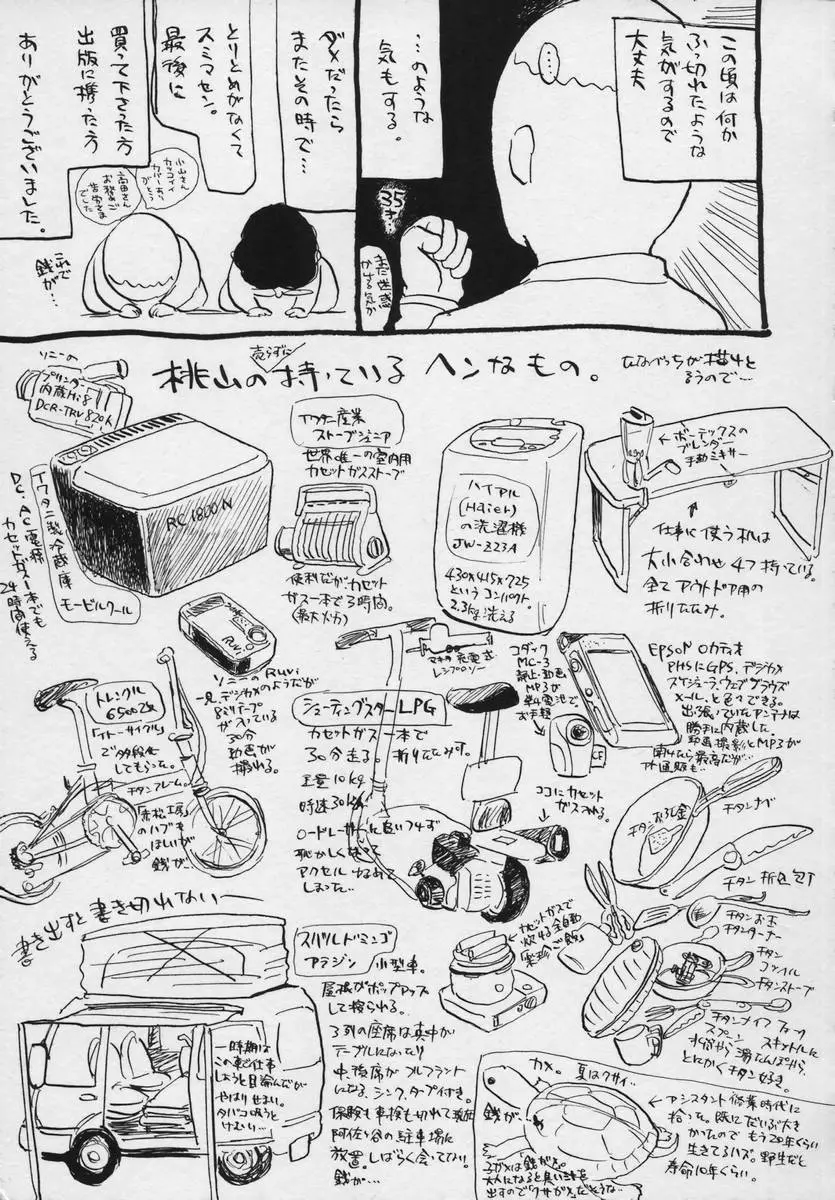 この頃は何か
ふっ切れたような
気がするので
大丈夫
…のような
気もする。
35才…
ダメだったら
またその時で…
とりとめがなくて
スミマセン。
最後に
買って下さった方
出版に携った方
ありがとうございました。
小山さん
カッコイイ
カバーあり
がとう
高田さん
お務めご
苦労さま
でした
これで
銭が…
桃山の売らずに持っているヘンなもの。
ソニーの
プリンター
内蔵Hi8
DCR-TRV820K
RC1800N
イワタニ製冷蔵庫
モービルクール
DC、AC電源
カセットガス一本でも
24時間使える
イワタニ産業
ストーブジュニア
世界唯一の室内用
カセットガスストーブ
便利だがカセット
ガス一本で3時間。
(最大火力)
ハイアル
(Haier)
の洗濯機
JW-Z23A
430×415×725
というコンパクト。
2.3kg洗える
ボーテックスの
ブレンダー
手動ミキサー
仕事に使う机は
大小合わせ4つ持ている。
全てアウトドア用の
折りたたみ。
ソニーのRuvi
一見、デジカメのようだが
8ミリテープ
が入っている
30分
動画が
撮れる。
トレンクル
6500改
「イトーサイクル」
で多段化
してもらった。
チタンフレーム。
「赤松工房」
のハブも
ほしいが
銭が…
シューティングスターLPG
カセットガス一本で
30分走る。折りたたみ可。
重量10kg
時速30km
ロードレーサーに追いつけず
恥かしくなって
アクセルゆるめて
しまった…
マキタ充電式
レシプロソー
コダック
MC-3
静止・動画
MP3が
単4電池で
お手軽
CF
ココにカセット
ガス入れる。
EPSONロカティオ
PHSにGPS、デジカメ
スケジューラ、ウェブブラウズ
メールと色々できる。
出っ張っていたアンテナは
勝手に内蔵した。
動画撮影とMP3が
チタンおろし金
チタンナベ
チタン折込包丁
チタンお玉
チタンターナー
チタン
コッヘル
チタンストーブ
チタンナイフフォーク
スプーン スキットルに
水筒から湯たんぽまで。
とにかくチタン好き。
カセットガスで
炊ける全自動
書き出すと書き切れない──
スバルドミンゴ
アラジン 小型車。
屋根がポップアップ
して捨られる。
3列の座席は真中が
テーブルになったり
中後席がフルフラット
になる、シンク、タープ付き。
保険も車検も切れて現在
阿佐ヶ谷の駐車場に
放置。しばらく会ってない。
銭が…
一時期は
この車で仕事
しようと目論んだが
やはりせまい。
タバコ吸うと
けむい…
カメ。 夏はクサイ
銭が…
アシスタント修業時代に
拾った。既にだいぶ大き
かったのでもう20年くらい
生きてるハズ。野生だと
寿命10年くらい。
子ガメは「銭がメ」。